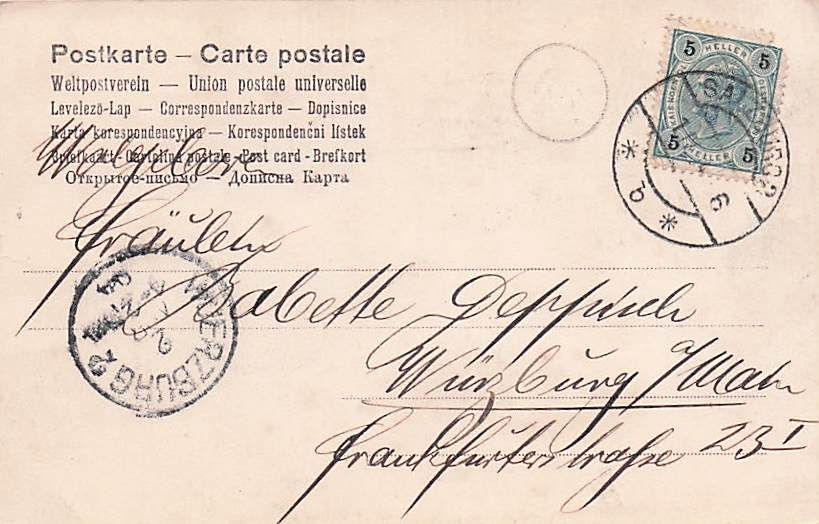 Postkarte — Carte postale
Weltpostverein — Union postale universelle
Levelező-Lap — Correspondenzkarte — Dopisnice
Karta korespondencyjna — Korespondenční lístek
Briefkaart - Cartolina postale - Post card - Brefkort
Открытое-письмо — Дописна Карта
5 HELLER 5
5 HELLER 5
Fräulein
Babette Deppisch
Würzburg a/Main
Frankfurterstraße 23 I
WUERZBURG 2